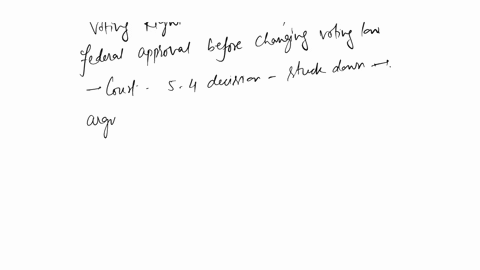 Voting Right
federal approval before changing voting law
→ Court · 5.4 decision – stuck down →.
argu